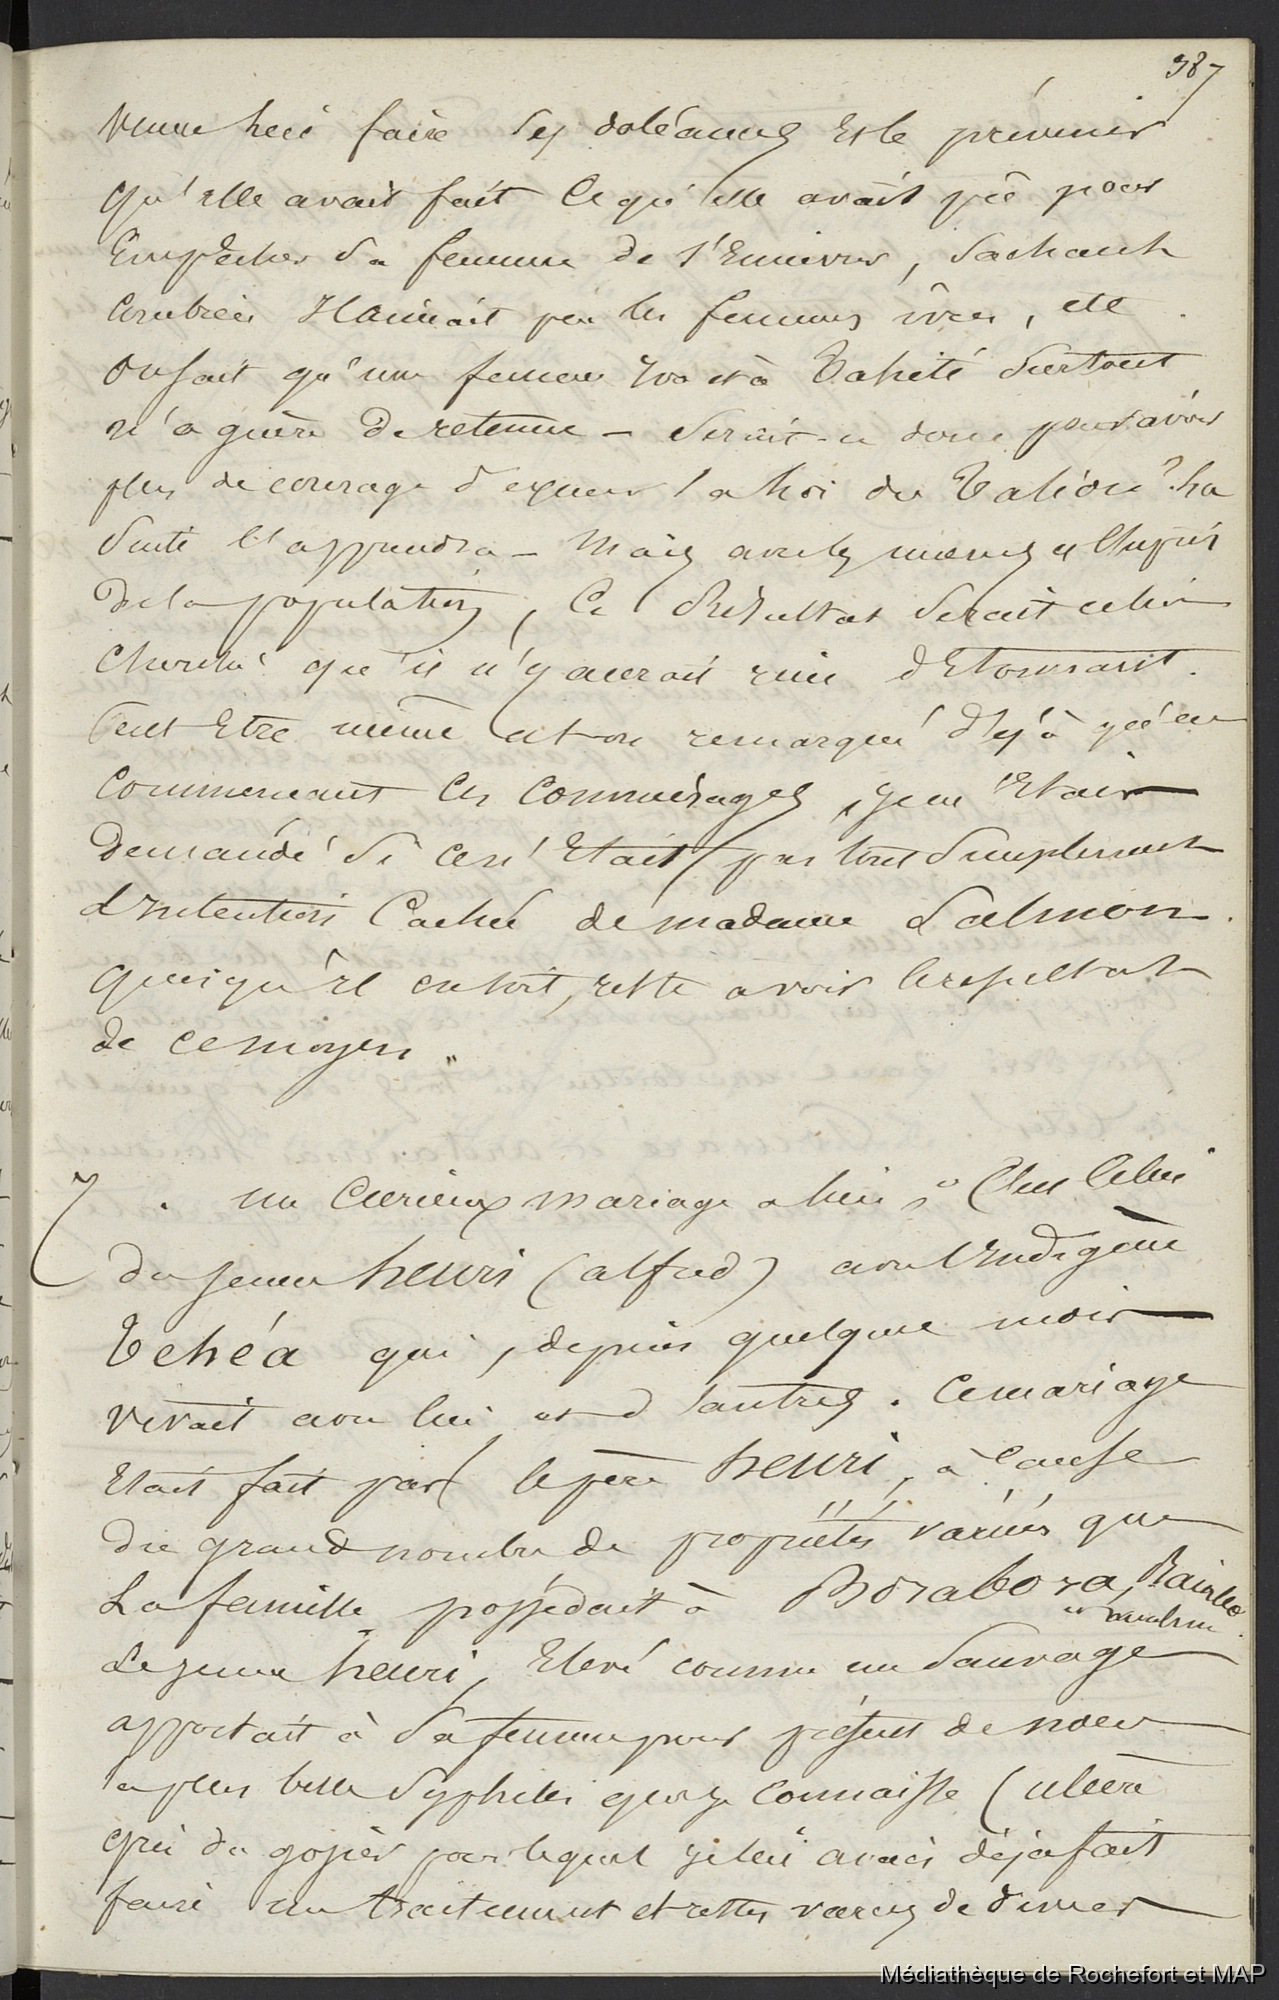 387
venue lui faire ses doléances et le prévenir
qu'elle avait fait ce qu'elle avait pû pour
Empêcher sa femme de s'Enivrer, sachant
combien Il aimait peu les femmes ivres, etc
on sait qu'une femme ivre et à Tahiti surtout
n'a guère de retenue – serait-ce donc pour avoir
plus de courage d'exercer la loi du Talion? La
suite l'apprendra – Mais avec les mœurs et l'Esprit
de la population, ce Résultat serait celui
cherché qu'il n'y aurait rien d'Etonnant.
Peut Etre même a-t-on remarqué déjà qu'en
commencant ces commérages, je m'Etais
demandé si ce n'Etait pas tout simplement
L'Intention cachée de madame Salmon.
quoiqu'Il en soit, reste a voir le resultat
de ce moyen.
7. un curieux mariage a lieu, c'est celui
du jeune henri (alfred) avec l'Indigène
Tehéa qui, depuis quelque mois
vivait avec lui et d'autres. Ce mariage
Etait fait par le père henri, à cause
du grand nombre de propriétés variées que
La famille possédait à Borabora,
Le jeune henri, Elevé comme un sauvage
apportait à sa femme pour présent de noce
la plus belle syphilis que je connaisse (ulcère
du gosier pour lequel je lui avais déjà fait
faire un traitement et restes de
Médiathèque de Rochefort et MAP